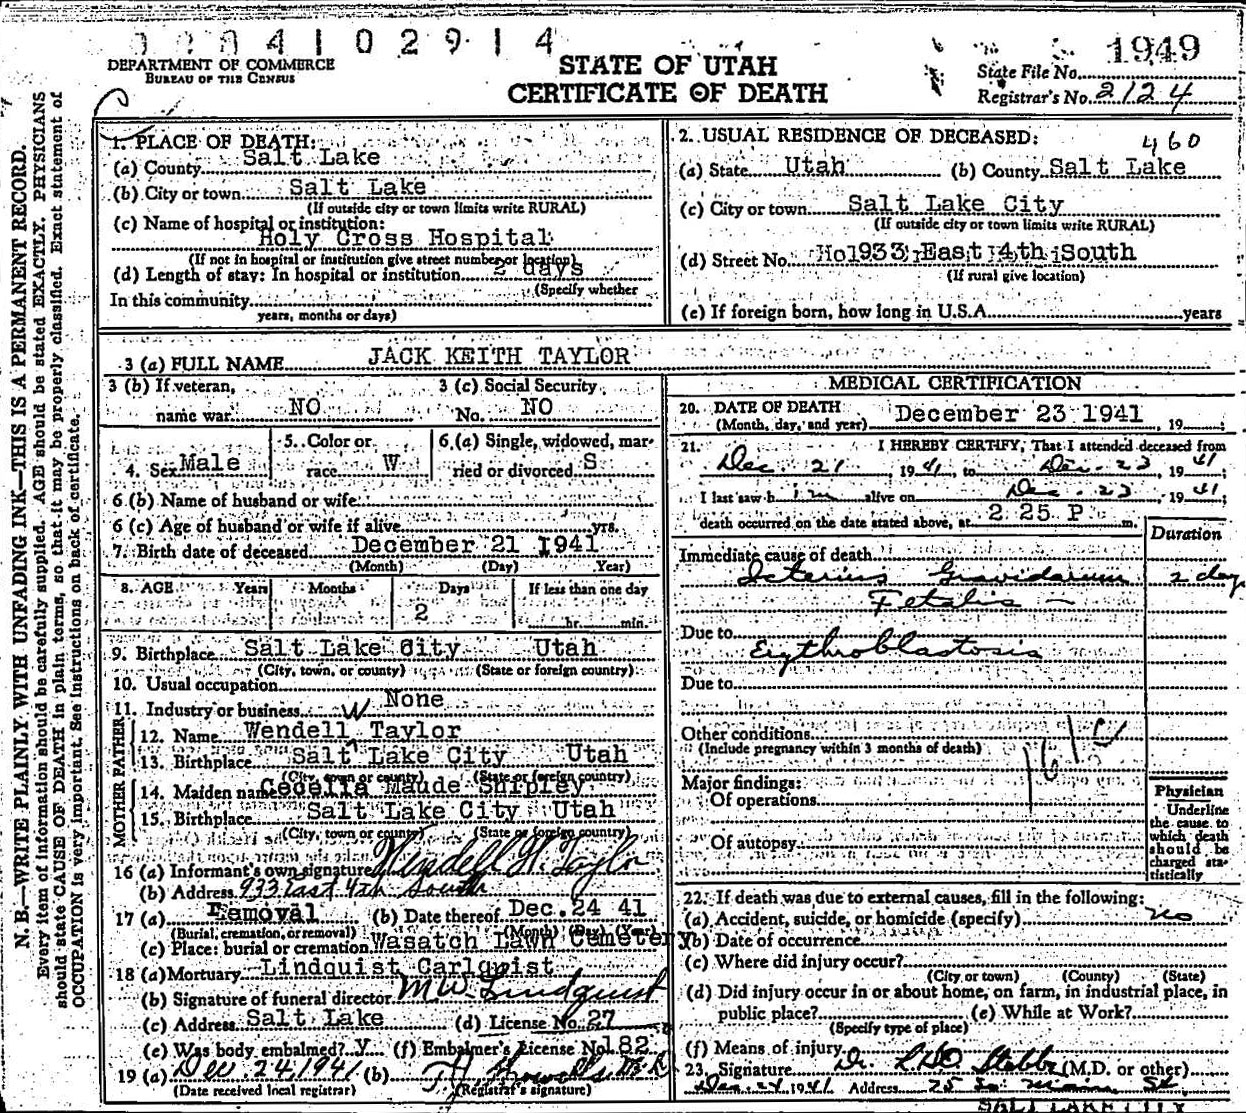 0 2 8 4 1 0 2 9 1 4
DEPARTMENT OF COMMERCE
BUREAU OF THE CENSUS
STATE OF UTAH
CERTIFICATE OF DEATH
1949
State File No.
Registrar's No. 2124
N. B.—WRITE PLAINLY WITH UNFADING INK—THIS IS A PERMANENT RECORD.
Every item of information should be carefully supplied. AGE should be stated EXACTLY. PHYSICIANS
should state CAUSE OF DEATH in plain terms, so that it may be properly classified. Exact statement of
OCCUPATION is very important. See instructions on back of certificate.
1. PLACE OF DEATH:
(a) County Salt Lake
(b) City or town Salt Lake
(If outside city or town limits write RURAL)
(c) Name of hospital or institution:
Holy Cross Hospital
(If not in hospital or institution give street number or location)
(d) Length of stay: In hospital or institution 2 days
(Specify whether
In this community
years, months or days)
2. USUAL RESIDENCE OF DECEASED:
460
(a) State Utah (b) County Salt Lake
(c) City or town Salt Lake City
(If outside city or town limits write RURAL)
(d) Street No. 933 East 4th South
(If rural give location)
(e) If foreign born, how long in U.S.A. years
3 (a) FULL NAME JACK KEITH TAYLOR
3 (b) If veteran, name war NO
3 (c) Social Security No. NO
4. Sex Male
5. Color or race W
6.(a) Single, widowed, married or divorced S
6 (b) Name of husband or wife
6 (c) Age of husband or wife if alive yrs.
7. Birth date of deceased December 21 1941
(Month) (Day) Year)
8. AGE Years Months Days If less than one day
2 hr. min.
9. Birthplace Salt Lake City Utah
(City, town, or county) (State or foreign country)
10. Usual occupation
11. Industry or business None
W
FATHER
12. Name Wendell Taylor
13. Birthplace Salt Lake City Utah
(City, town or county) (State or foreign country)
MOTHER
14. Maiden name Cecelia Maude Shipley
15. Birthplace Salt Lake City Utah
(City, town or county) (State or foreign country)
16 (a) Informant's own signature Wendell W. Taylor
(b) Address 933 East 4th South
17 (a) Removal (b) Date thereof Dec. 24 41
(Burial, cremation, or removal) (Month) (Day) (Year)
(c) Place: burial or cremation Wasatch Lawn Cemetery
18 (a) Mortuary Lindquist Carlquist
(b) Signature of funeral director M.W. Lindquist
(c) Address Salt Lake (d) License No. 27
(e) Was body embalmed? y (f) Embalmer's License No. 182
19 (a) Dec. 24, 1941 (b)
(Date received local registrar) (Registrar's signature)
MEDICAL CERTIFICATION
20. DATE OF DEATH December 23 1941, 19
(Month, day, and year)
21. I HEREBY CERTIFY, That I attended deceased from
Dec 21 1941 to Dec. 23, 1941;
I last saw h im alive on Dec. 23, 1941;
death occurred on the date stated above, at 2 25 P m.
Duration
Immediate cause of death
Icterius Gravidarum 2 day
Fetalis —
Due to
Erythroblastosis
Due to
Other conditions
(Include pregnancy within 3 months of death)
Major findings:
Of operations
Of autopsy
Physician
Underline
the cause to
which death
should be
charged sta-
tistically
22. If death was due to external causes, fill in the following:
(a) Accident, suicide, or homicide (specify) no
(b) Date of occurrence
(c) Where did injury occur?
(City or town) (County) (State)
(d) Did injury occur in or about home, on farm, in industrial place, in
public place? (e) While at Work?
(Specify type of place)
(f) Means of injury
23. Signature Dr. (M.D. or other)
Dec. 24 1941 Address 25 So. St
SALT LAKE CITY